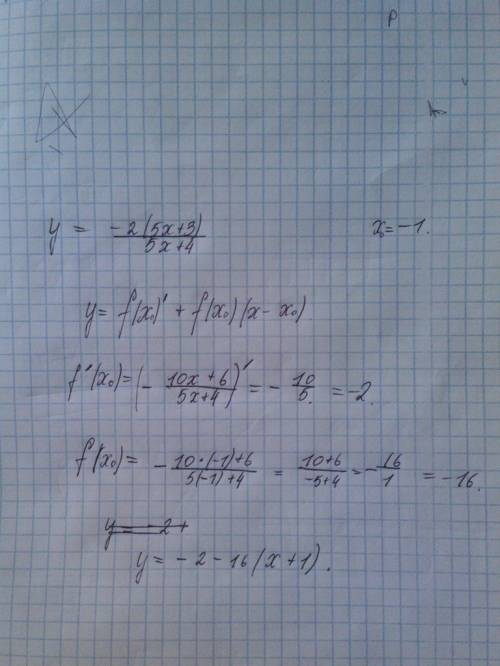 P
y = -2(5x+3)/5x+4    x₀ = -1.
y = f(x₀)' + f(x₀)(x - x₀)
f'(x₀) = (- 10x+6/5x+4)' = - 10/5. = -2.
f(x₀) = - 10·(-1)+6/5(-1)+4 = 10+6/-5+4 = -16/1 = -16.
y = -2+
y = -2 - 16(x+1).